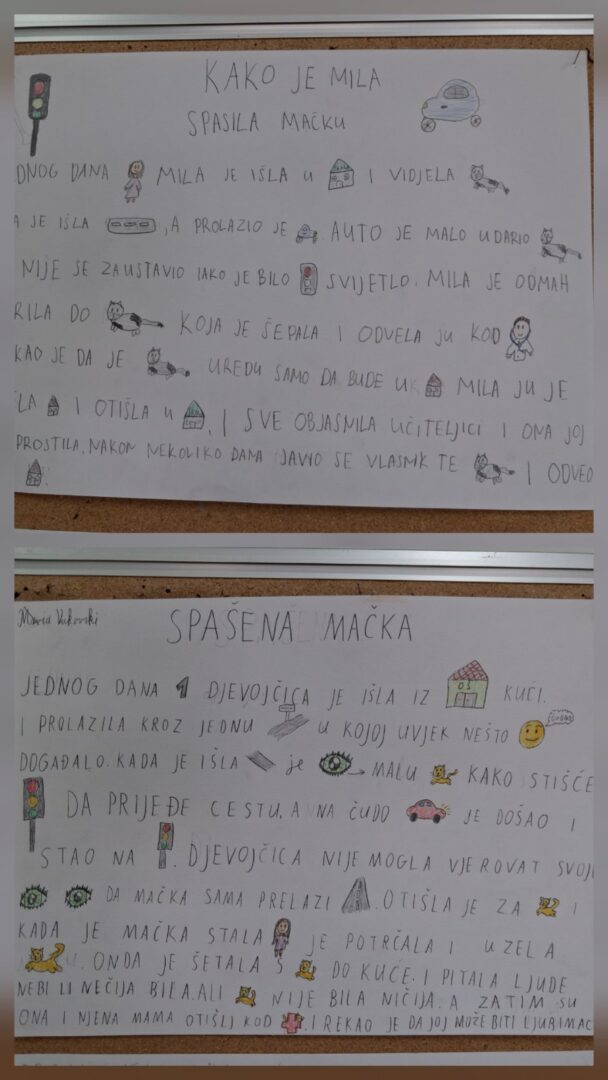 KAKO JE MILA
SPASILA MAČKU
DNOG DANA MILA JE IŠLA U I VIDJELA
A JE IŠLA , A PROLAZIO JE AUTO JE MALO UDARIO
NIJE SE ZAUSTAVIO IAKO JE BILO SVIJETLO. MILA JE ODMAH
RILA DO KOJA JE ŠEPALA I ODVELA JU KOD
KAO JE DA JE UREDU SAMO DA BUDE U MILA JU JE
LA I OTIŠLA U , I SVE OBJASNILA UČITELJICI I ONA JOJ
PROSTILA. NAKON NEKOLIKO DANA JAVIO SE VLASNIK TE I ODVEO
SPAŠENA MAČKA
JEDNOG DANA 1 DJEVOJČICA JE IŠLA IZ OŠ KUĆI.
I PROLAZILA KROZ JEDNU U KOJOJ UVJEK NEŠTO
DOGAĐALO. KADA JE IŠLA je MALU KAKO STIŠĆE
DA PRIJEĐE CESTU, A NA ČUDO JE DOŠAO I
STAO NA . DJEVOJČICA NIJE MOGLA VJEROVAT SVOJI
DA MAČKA SAMA PRELAZI . OTIŠLA JE ZA I
KADA JE MAČKA STALA JE POTRČALA I UZELA
. ONDA JE ŠETALA S DO KUĆE. I PITALA LJUDE
NEBI LI NEČIJA BILA. ALI NIJE BILA NIČIJA. A ZATIM SU
ONA I NJENA MAMA OTIŠLI KOD . I REKAO JE DA JOJ MOŽE BITI LJUBIMAC